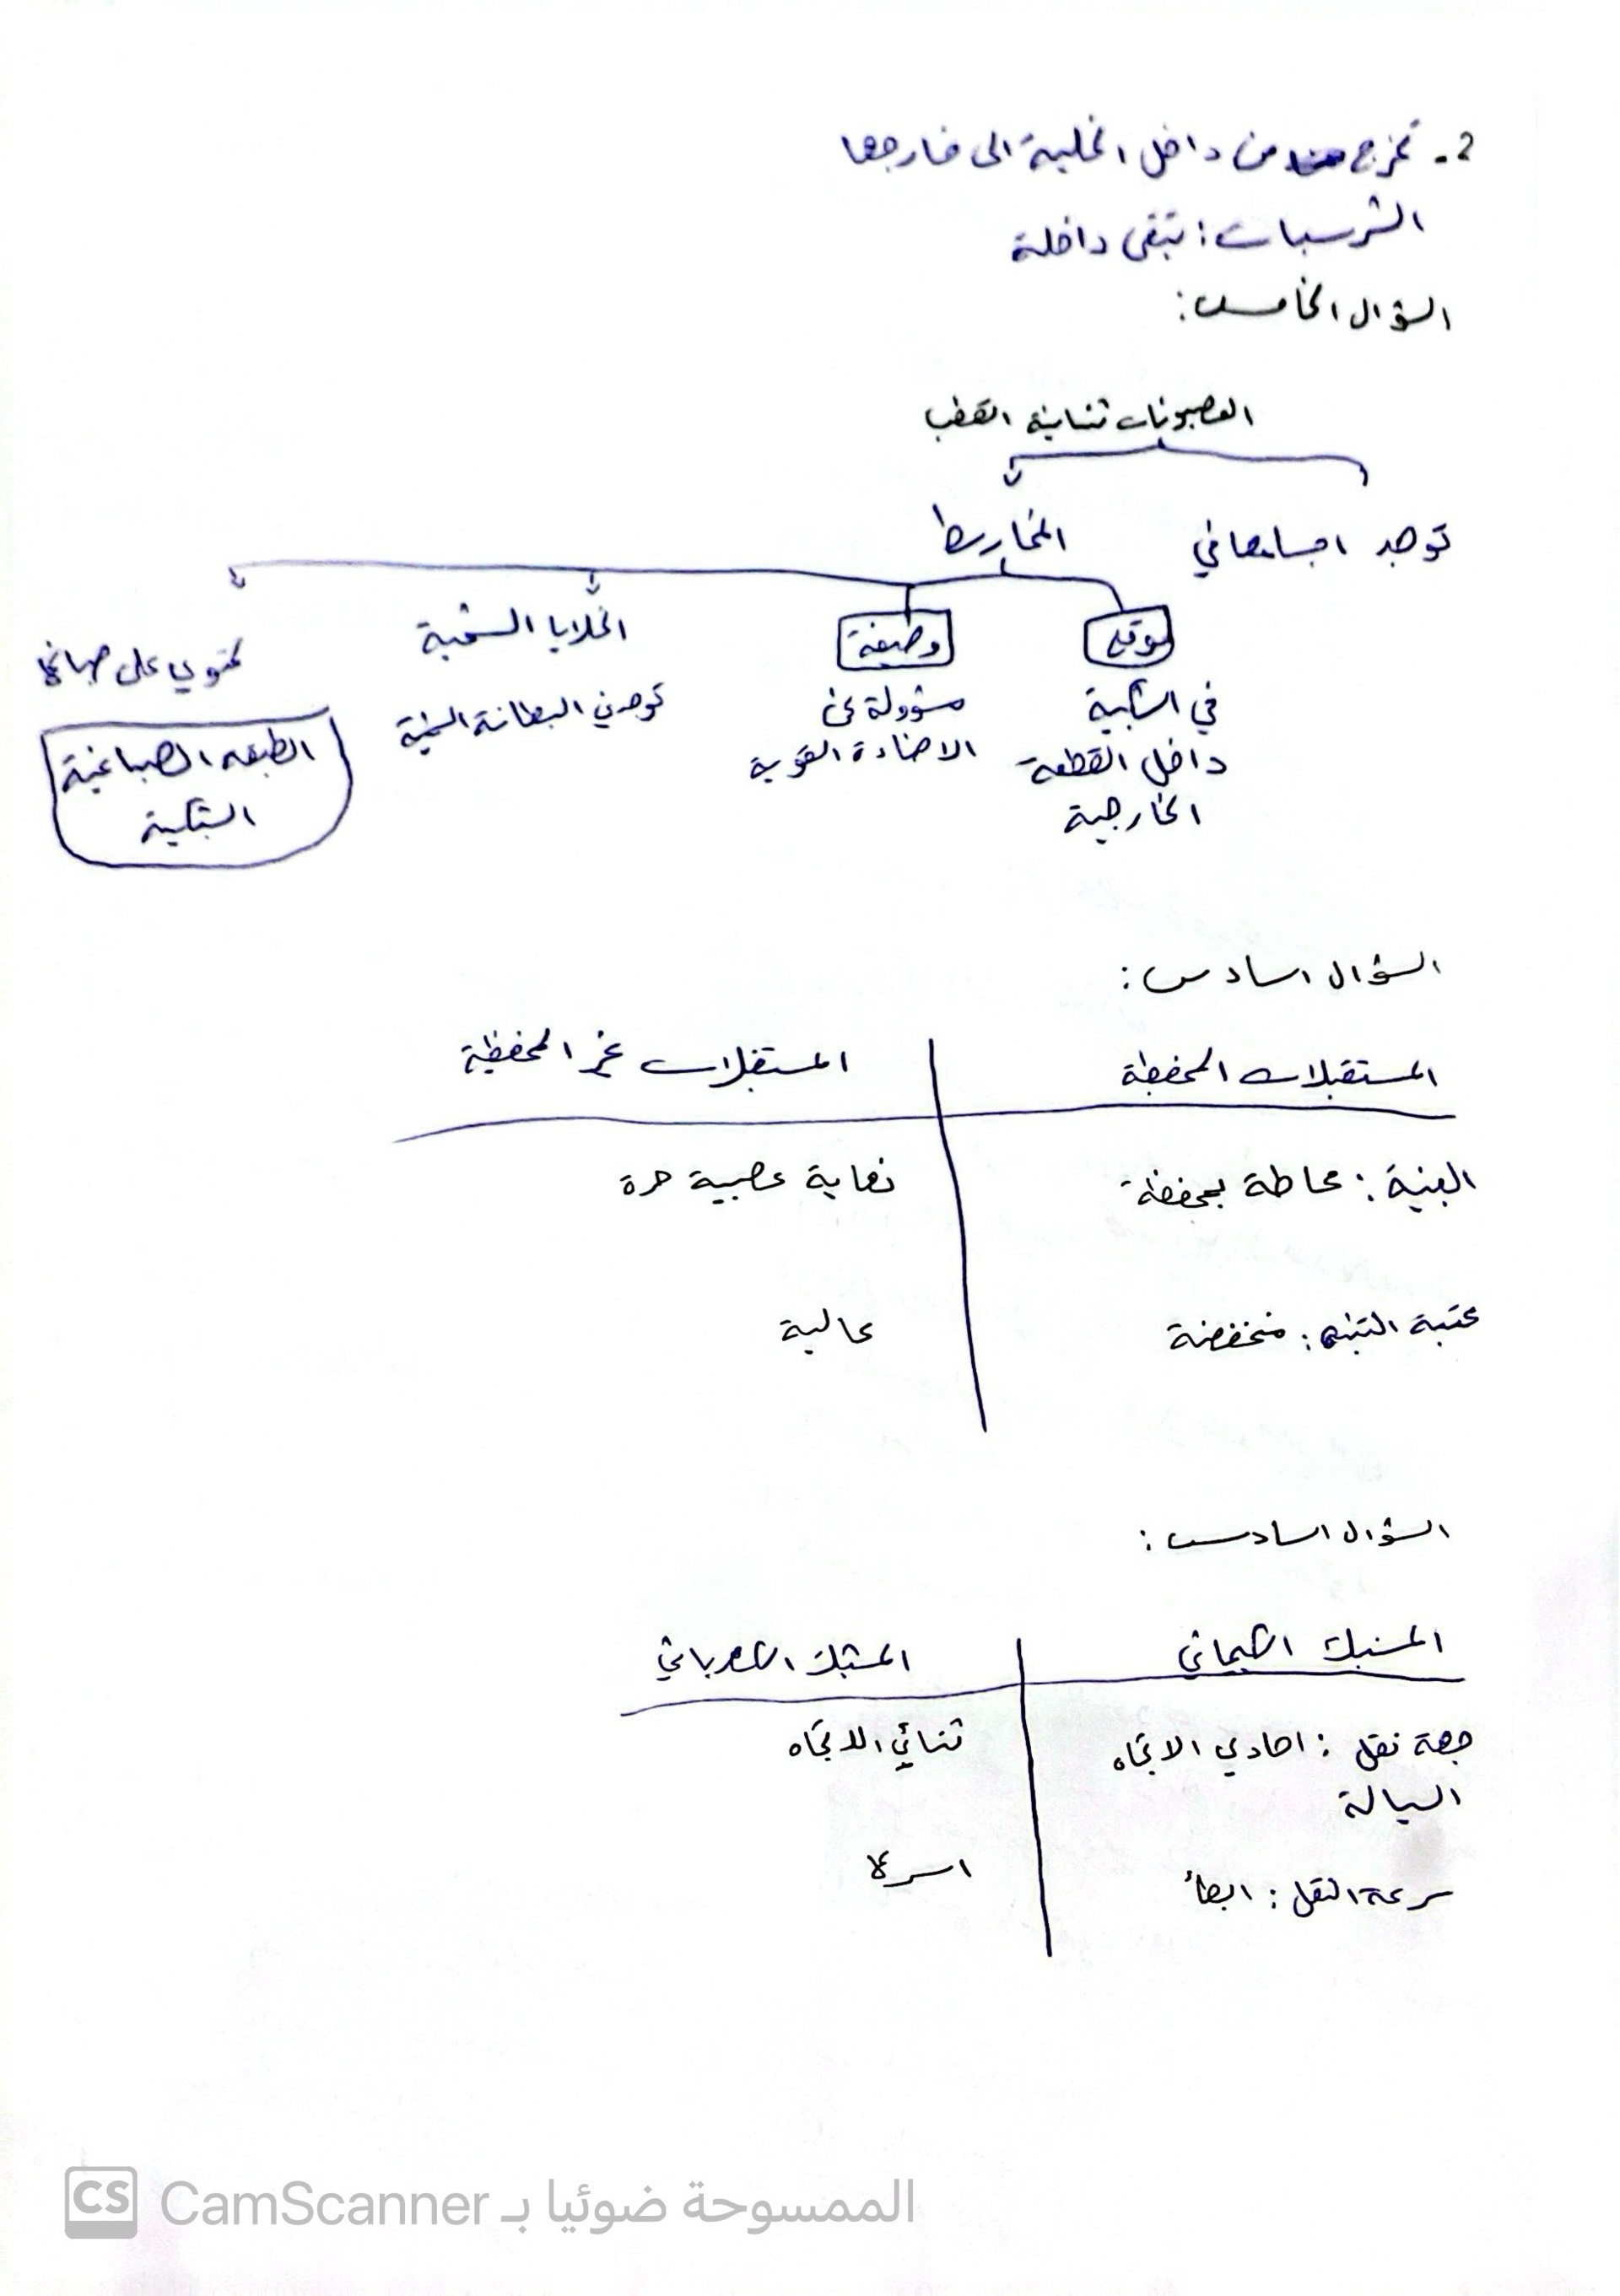 2- تخرج من داخل الخلية الى خارجها
الشرسبات: تبقى داخلة
السؤال الخامس:
العصبونات ثنائية القطب
توجد اجسامها في
المخاريط
موقع
وظيفة
الخلايا الشمية
تحتوي على صباغ
في الشبكية
داخل القطعة
الخارجية
مسؤولة عن
الاضاءة القوية
توجد في البطانة الشمية
الطبقة الصباغية
الشبكية
السؤال السادس:
المستقبلات المحفظية
المستقبلات غير المحفظية
البنية: محاطة بمحفظة
نهاية عصبية حرة
عتبة التنبيه: منخفضة
عالية
السؤال السادس:
المشبك الكيميائي
المشبك الكهربائي
جهة نقل: احادي الاتجاه
السيالة
ثنائي الاتجاه
سرعة النقل: ابطأ
اسرع
CS CamScanner الممسوحة ضوئيا بـ